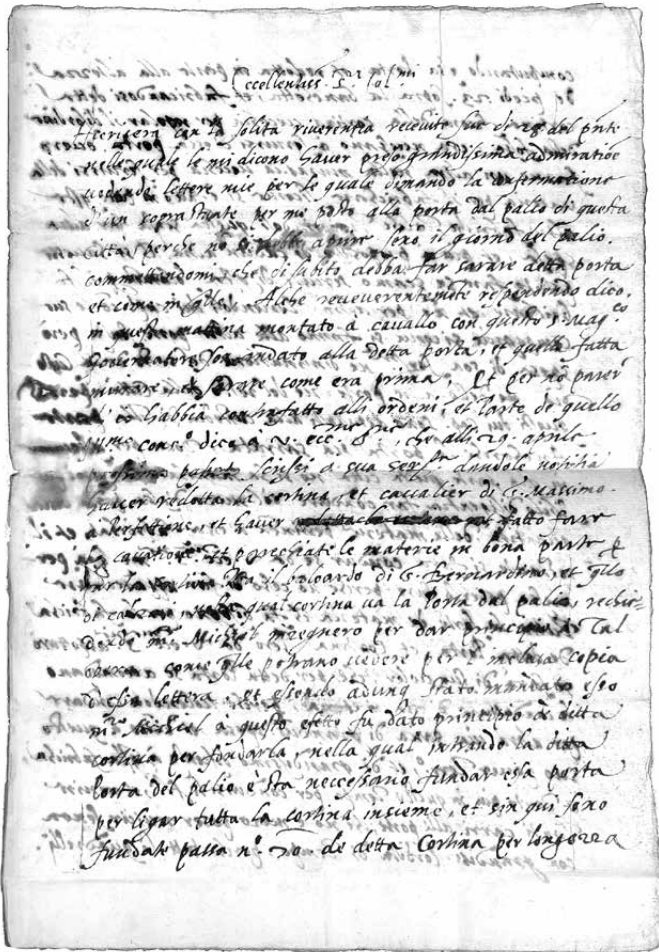 Eccellentiss. S.ri Col.mi
Hierisera con la solita riverentia recevite sue di 28 del pnte
nelle quale le mi dicono haver preso grandissima admiratioe
vedendo lettere mie per le quale dimando la confirmatione
d'un soprastante per me posto alla porta dal palio di questa
citta, perche nō si debbe aprire senō il giorno del palio.
commettendomi, che di subito debba far sarare detta porta
et come in qlle. Alche reverentemēte respondendo dico,
in questa mattina montato à cavallo con questo S. Mag.co
Governatore son andato alla detta porta, et quella fatta
murare et serare come era prima, Et per nō parer
ch'io habbia contrafatto alli ordeni, et parte de quello
Ill.mo cons.o dico à V. ecc.me S.rie, che alli 29. aprile
prossimo passato scrissi a sua Ser.tà dandole notitia
haver redotta la cortina, et cavalier di S. Massimo
perfettione, et haver fatto fare
la cavatione et parechiate le materie in bona parte p
far la cortina tra il beloardo di S. Bernardino, et qllo
nella qual cortina va la Porta dal palio, rechie-
dendo m.ro Michiel inzegnero per dar principio à tal
opera come qlle potrano vedere per l'inclusa copia
d'essa lettera, et essendo adunq stato mandato esso
m.ro Michiel à questo efetto fu dato principio à ditta
cortina per fondarla, nella qual intrando la ditta
Porta del palio è sta neccessario fundar essa porta
per ligar tutta la cortina insieme, et sin qui sono
fundate passa n.o 70. de detta Cortina per longezza